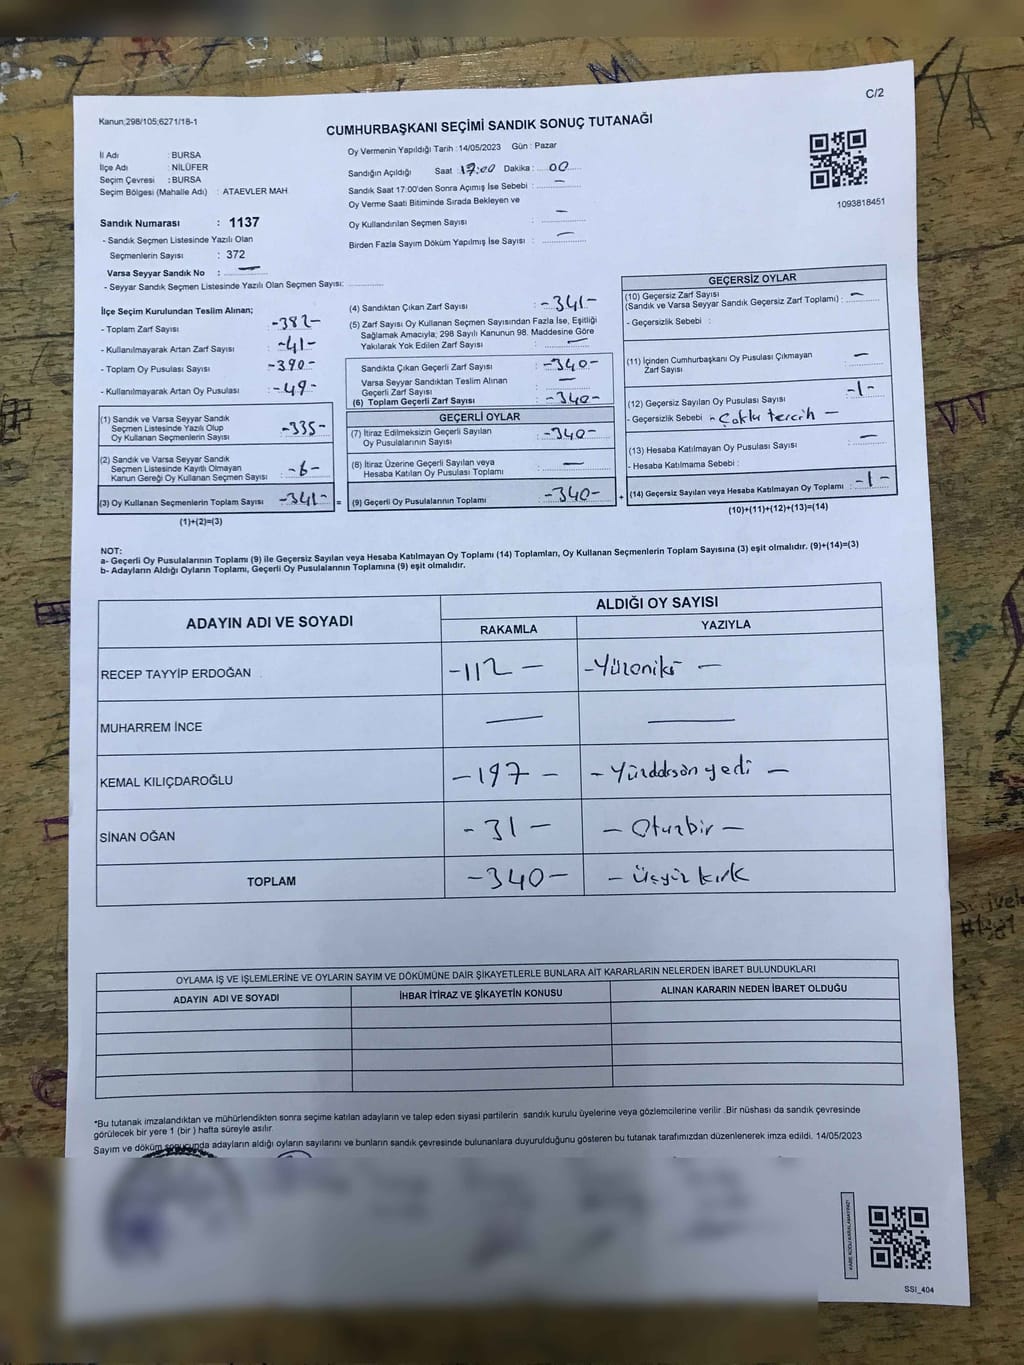 C/2
Kanun;298/105;6271/18-1
CUMHURBAŞKANI SEÇİMİ SANDIK SONUÇ TUTANAĞI
İl Adı : BURSA
İlçe Adı : NİLÜFER
Seçim Çevresi : BURSA
Seçim Bölgesi (Mahalle Adı) : ATAEVLER MAH
Oy Vermenin Yapıldığı Tarih : 14/05/2023 Gün : Pazar
Sandığın Açıldığı Saat : 17:00 Dakika : 00
Sandık Saat 17:00'den Sonra Açımış İse Sebebi : —
Oy Verme Saati Bitiminde Sırada Bekleyen ve
Oy Kullandırılan Seçmen Sayısı : —
Birden Fazla Sayım Döküm Yapılmış İse Sayısı : —
1093818451
Sandık Numarası : 1137
- Sandık Seçmen Listesinde Yazılı Olan
Seçmenlerin Sayısı : 372
Varsa Seyyar Sandık No : —
- Seyyar Sandık Seçmen Listesinde Yazılı Olan Seçmen Sayısı:
İlçe Seçim Kurulundan Teslim Alınan;
- Toplam Zarf Sayısı : -382-
- Kullanılmayarak Artan Zarf Sayısı : -41-
- Toplam Oy Pusulası Sayısı : -390-
- Kullanılmayarak Artan Oy Pusulası : -49-
(1) Sandık ve Varsa Seyyar Sandık
Seçmen Listesinde Yazılı Olup
Oy Kullanan Seçmenlerin Sayısı : -335-
(2) Sandık ve Varsa Seyyar Sandık
Seçmen Listesinde Kayıtlı Olmayan
Kanun Gereği Oy Kullanan Seçmen Sayısı : -6-
(3) Oy Kullanan Seçmenlerin Toplam Sayısı : -341- =
(1)+(2)=(3)
(4) Sandıktan Çıkan Zarf Sayısı : -341-
(5) Zarf Sayısı Oy Kullanan Seçmen Sayısından Fazla İse, Eşitliği
Sağlamak Amacıyla; 298 Sayılı Kanunun 98. Maddesine Göre
Yakılarak Yok Edilen Zarf Sayısı : —
Sandıkta Çıkan Geçerli Zarf Sayısı : -340-
Varsa Seyyar Sandıktan Teslim Alınan
Geçerli Zarf Sayısı : —
(6) Toplam Geçerli Zarf Sayısı : -340-
GEÇERLİ OYLAR
(7) İtiraz Edilmeksizin Geçerli Sayılan
Oy Pusulalarının Sayısı : -340-
(8) İtiraz Üzerine Geçerli Sayılan veya
Hesaba Katılan Oy Pusulası Toplamı : —
(9) Geçerli Oy Pusulalarının Toplamı : -340- +
GEÇERSİZ OYLAR
(10) Geçersiz Zarf Sayısı
(Sandık ve Varsa Seyyar Sandık Geçersiz Zarf Toplamı) : —
- Geçersizlik Sebebi :
(11) İçinden Cumhurbaşkanı Oy Pusulası Çıkmayan
Zarf Sayısı : —
(12) Geçersiz Sayılan Oy Pusulası Sayısı : -1-
- Geçersizlik Sebebi : - Çoklu tercih —
(13) Hesaba Katılmayan Oy Pusulası Sayısı : —
- Hesaba Katılmama Sebebi :
(14) Geçersiz Sayılan veya Hesaba Katılmayan Oy Toplamı : -1-
(10)+(11)+(12)+(13)=(14)
NOT:
a- Geçerli Oy Pusulalarının Toplamı (9) ile Geçersiz Sayılan veya Hesaba Katılmayan Oy Toplamı (14) Toplamları, Oy Kullanan Seçmenlerin Toplam Sayısına (3) eşit olmalıdır. (9)+(14)=(3)
b- Adayların Aldığı Oyların Toplamı, Geçerli Oy Pusulalarının Toplamına (9) eşit olmalıdır.
ADAYIN ADI VE SOYADI
ALDIĞI OY SAYISI
RAKAMLA YAZIYLA
RECEP TAYYİP ERDOĞAN -112- -Yüzoniki-
MUHARREM İNCE — —
KEMAL KILIÇDAROĞLU -197- -Yüzddksonyedi-
SİNAN OĞAN -31- -Otuzbir-
TOPLAM -340- - Üçyüz kırk
OYLAMA İŞ VE İŞLEMLERİNE VE OYLARIN SAYIM VE DÖKÜMÜNE DAİR ŞİKAYETLERLE BUNLARA AİT KARARLARIN NELERDEN İBARET BULUNDUKLARI
ADAYIN ADI VE SOYADI İHBAR İTİRAZ VE ŞİKAYETİN KONUSU ALINAN KARARIN NEDEN İBARET OLDUĞU
*Bu tutanak imzalandıktan ve mühürlendikten sonra seçime katılan adayların ve talep eden siyasi partilerin sandık kurulu üyelerine veya gözlemcilerine verilir .Bir nüshası da sandık çevresinde
görülecek bir yere 1 (bir ) hafta süreyle asılır.
Sayım ve döküm sonucunda adayların aldığı oyların sayılarını ve bunların sandık çevresinde bulunanlara duyurulduğunu gösteren bu tutanak tarafımızdan düzenlenerek imza edildi. 14/05/2023
SSI_404